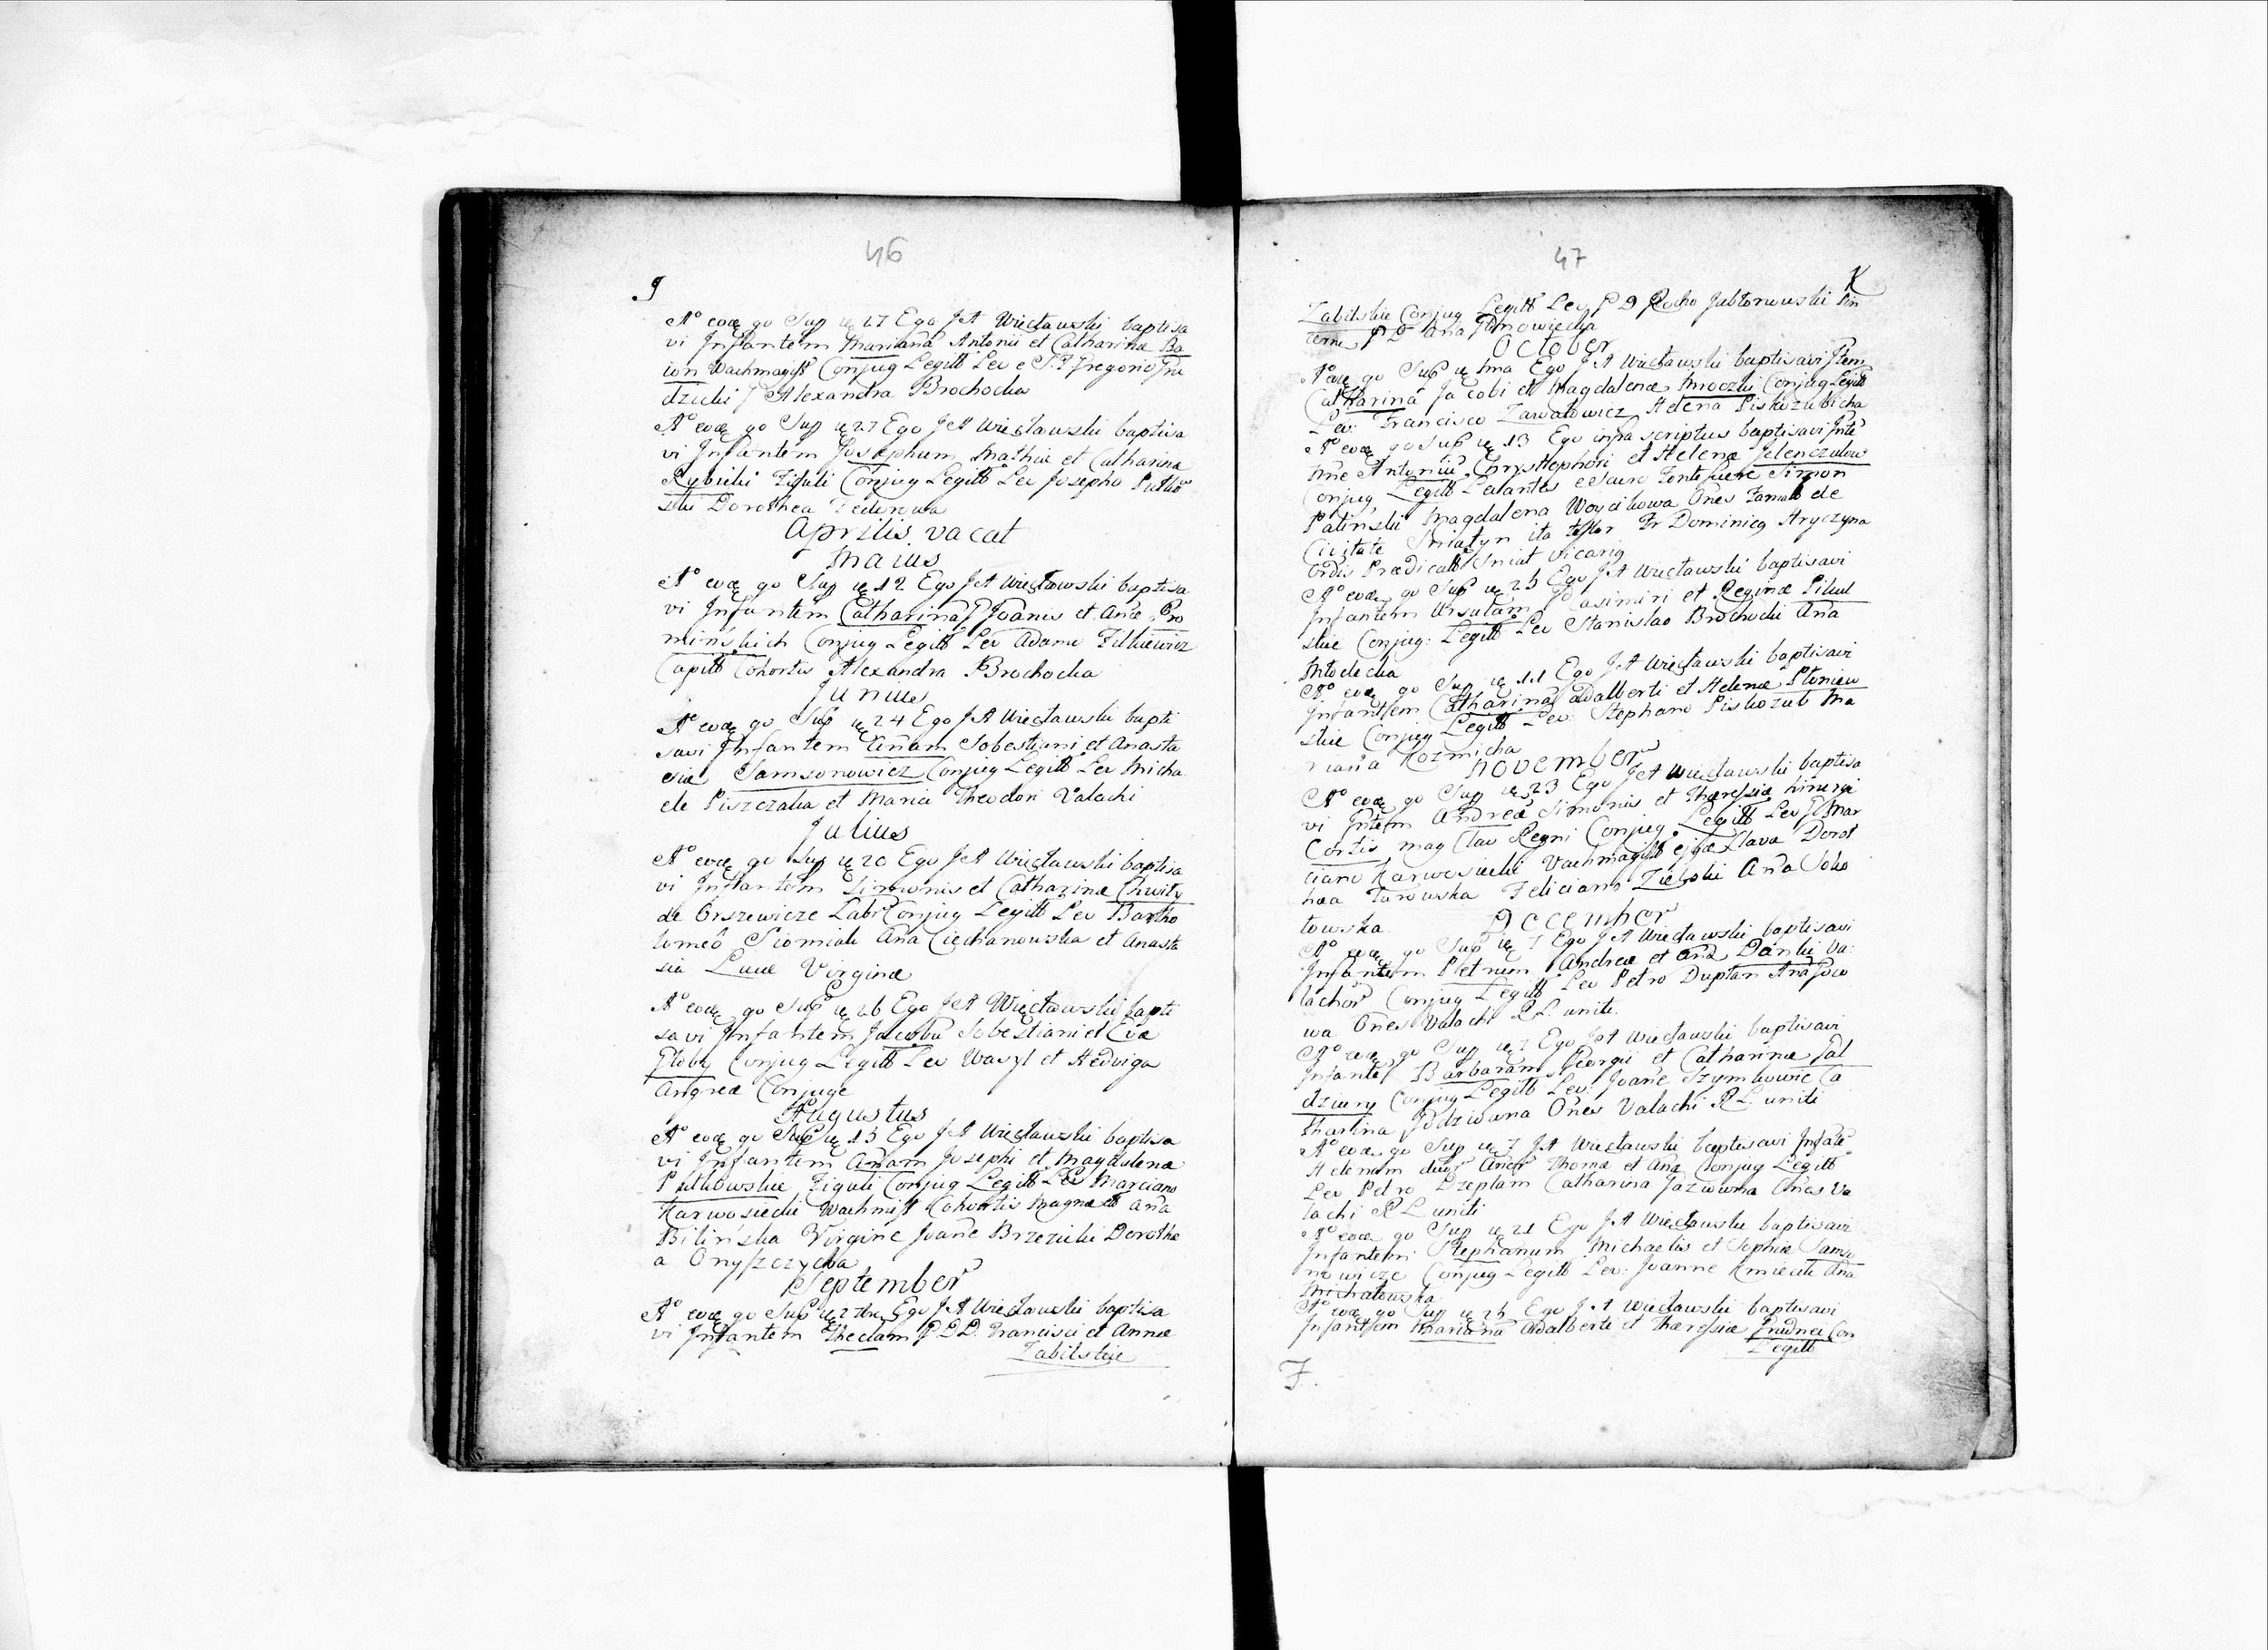 46
J
Aº eodę qo Sup ię 27 Ego J A Więcławski baptisa
vi Infantem Mariana Antonii et Catharinæ Ba
Wachmagist Conjug Legitt Lev Gregorio
dzicki Alexandra Brochocka
Aº eodę qo Sup ię 27 Ego J A Więcławski baptisa
vi Infantem Josephum Mathiæ et Catharinæ
Rybicki Figuli Conjug Legitt Lev Josepho
Dorothea Federowa
Aprilis vacat
Maius
Aº eodę qo Sup ię 12 Ego J A Więcławski baptisa
vi Infantem Catharina Joanis et Anæ Pro
minskich Conjug Legitt Lev Adamo Filkiewicz
Capitt Cohortis Alexandra Brochocka
Junius
Aº eodę qo Sup ię 24 Ego J A Więcławski bapti
savi Infantem Anam Sobestiani et Anasta
siæ Samsonowicz Conjug Legitt Lev Micha
ele Piszczaka et Maria Theodori Valachi
Julius
Aº eodę qo Sup ię 20 Ego J A Więcławski baptisa
vi Infantem Simonis et Catharinæ Chwity
de Orszewicze Labr Conjug Legitt Lev Bartho
lomeo Siomiak Ana Ciechanowska et Anasta
sia Lucæ Virginæ
Aº eodę qo Sup ię 26 Ego J A Więcławski bapti
savi Infantem Jacobu Sobestiani et Evæ
Conjug Legitt Lev Wasyl et Hedviga
Conjuge
Augustus
Aº eodę qo Sup ię 15 Ego J A Więcławski baptisa
vi Infantem Anam Josephi et Magdalenæ
Putkowskie Figuli Conjug Legitt Lev Marciano
Karwosiecki Wachmist Cohortis Magnæ et Ana
Bilińska Virgine Joane Brzezicki Dorothe
a Onyszczycha
September
Aº eodę qo Sup ię 27 Ego J A Więcławski baptisa
vi Infantem Theclam P D D Francisci et Annæ
Zabilskie
47
K
Zabilskie Conjug Legitt Lev P D Rocho Jabłonowski Pin
cerne P D Ana
October
Aº eodę qo Sup ię 1ma Ego J A Więcławski baptisavi Item
Catharina Jacobi et Magdalenæ Mroczki Conjug Legitt
Lev: Francisco Zawałowicz Helena Piskozubicha
Aº eodę qo Sup ię 13 Ego infra scriptus baptisavi Infte
mne Antoniu Chrysthophori et Helenæ Jelenczukow
Conjug Legitt Levantes e Sacro Fonte fuere Simon
Patiński Magdalena Woycikowa Ones Famati de
Civitate Sniatyn ita testor Fr Dominicq Hryczyna
Ordis Prædicatt Sniat Vicariq
Aº eodę qo Sup ię 25 Ego J A Więcławski baptisavi
Infantem Ursulam Casimiri et Reginæ Pikul
skie Conjug: Legitt Lev Stanislao Brochocki Ana
Młodecka
Aº eodę qo Sup ię 11 Ego J A Więcławski baptisavi
Infantem Catharina Adalberti et Helenæ Słoniew
skie Conjug Legitt Lev: Stephano Piskozub Ma
riana Kozmicha
November
Aº eodę qo Sup ię 23 Ego J A Więcławski baptisa
vi Inftem Andrea Simonis et Theresiæ
Cortis mag Clav Regni Conjug Legitt Lev Mar
ciano Karwosiecki Vachmagist Dorot
hea Turowska Feliciano Zielski Ana Soko
łowska
December
Aº eodę qo Sup ię 7 Ego J A Więcławski baptisavi
Infantem Petrum Andreæ et Anæ Dańkij Va:
lachor Conjug Legitt Lev Petro Duplan Ana
wa Ones Valachi R L uniti
Aº eodę qo Sup ię 7 Ego J A Więcławski baptisavi
Infante Barbaram Georgii et Catharinæ
Conjug Legitt Lev: Joane Szymkowic Ca
tharina Ones Valachi R L uniti
Aº eodę qo Sup ię 7 J A Więcławski baptisavi Infate
Helenam Thomæ et Anæ Conjug Legitt
Lev Petro Catharina Ones Va
lachi R L uniti
Aº eodę qo Sup ię 21 Ego J A Więcławski baptisavi
Infantem Stephanum Michaelis et Sophiæ Samso
nowicze Conjug Legitt Lev: Joanne Kmiecik Ana
Michałowska
Aº eodę qo Sup ię 26 Ego J A Więcławski baptisavi
Infantem Mariana Adalberti et Theresiæ Con
Legitt
F.